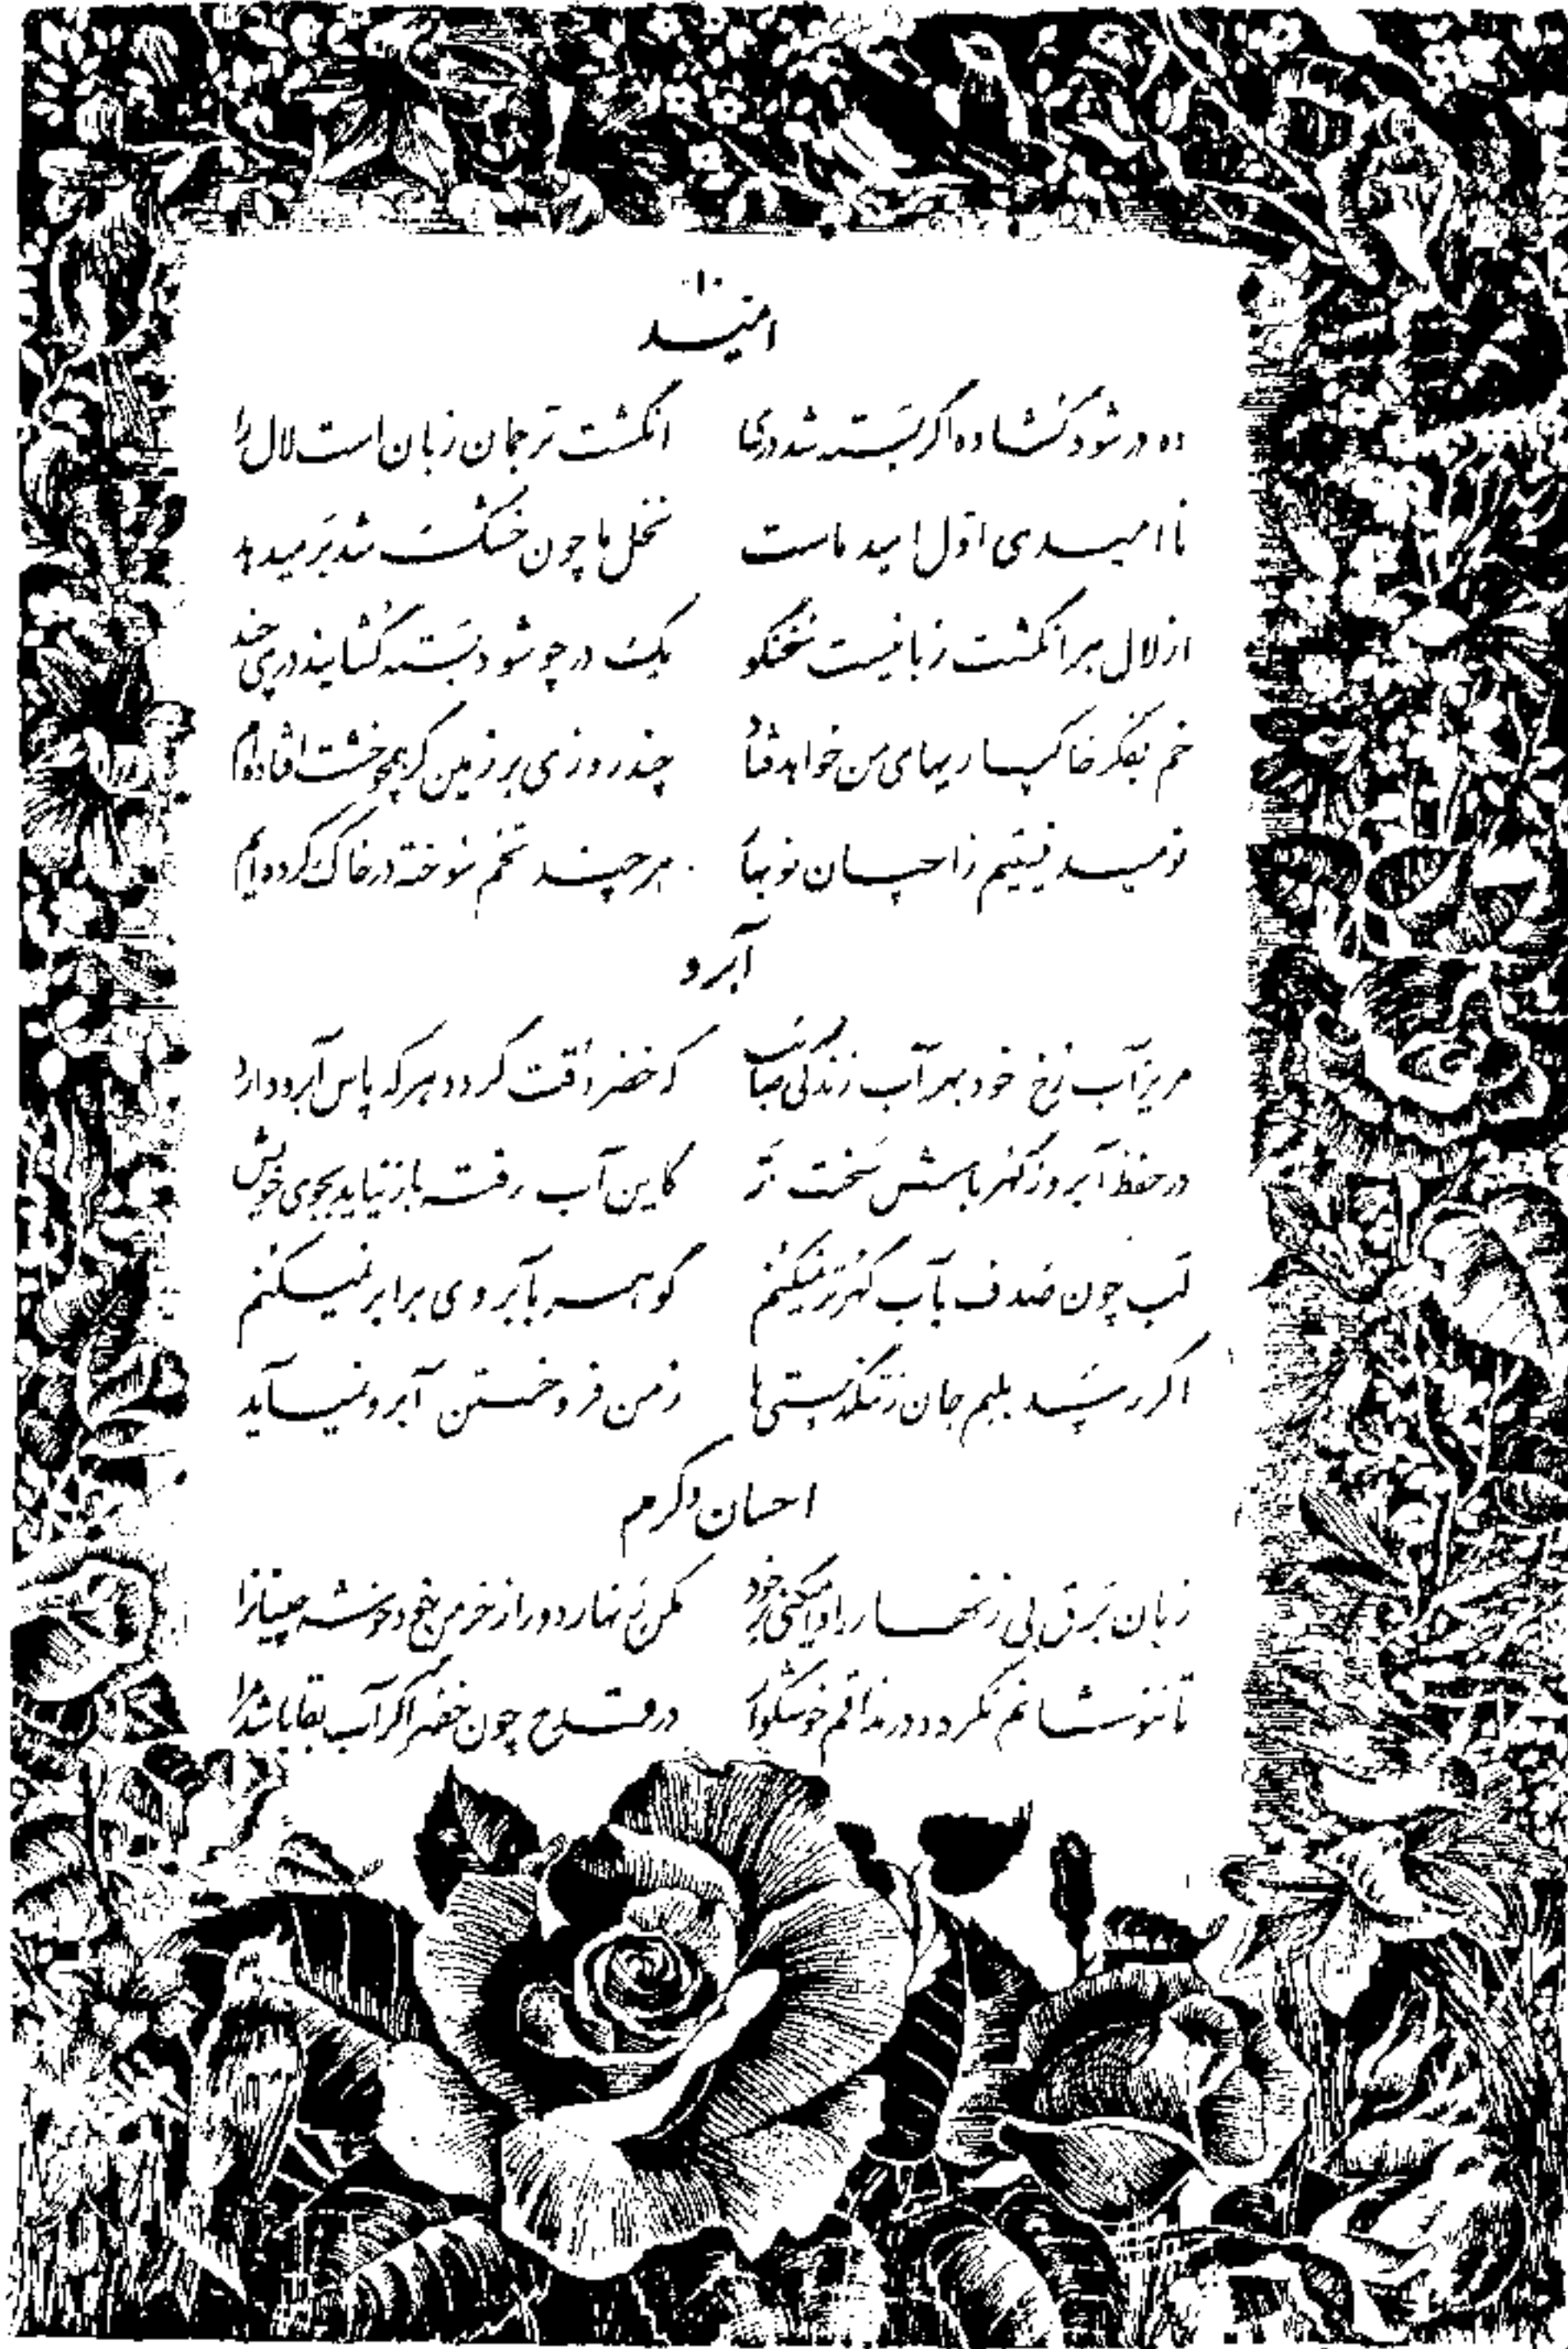 ۱۰
امید
ده در شود گشاده اگر بسته شد دری انگشت ترجمان زبان است لال را
نا امیدی اول امید ماست نخل ما چون خشک شد بر میدهد
از لال هر انگشت زبانیست سخنگو یک در چو شود بسته گشایند دری چند
خم بفکر خاکساریهای من خواهد فتاد چند روزی بر زمین گر همچو خشت افتاده‌ام
نومید نیستیم ز احسان نوبهار هر چند تخم سوخته در خاک کرده ایم
آبرو
مریز آب رخ خود بهر آب زندگی صائب که خضر وقت گردد هر که پاس آبرو دارد
در حفظ آبرو ز گهر باش سخت تر کاین آب رفته باز نیاید بجوی خویش
لب چون صدف بآب گهر تر نمیکنم گوهر بآبروی برابر نمیکنم
اگر رسد بلبم جان ز تنگدستی‌ها ز من فروختن آبرو نمیآید
احسان و کرم
زبان برق بی زنهار را وا میکنی بر خود مکن زنهار دور از خرمن خود خوشه چینانرا
تا ننوشانم نگردد در مذاقم خوشگوار در قدح چون خضر اگر آب بقا باشد مرا